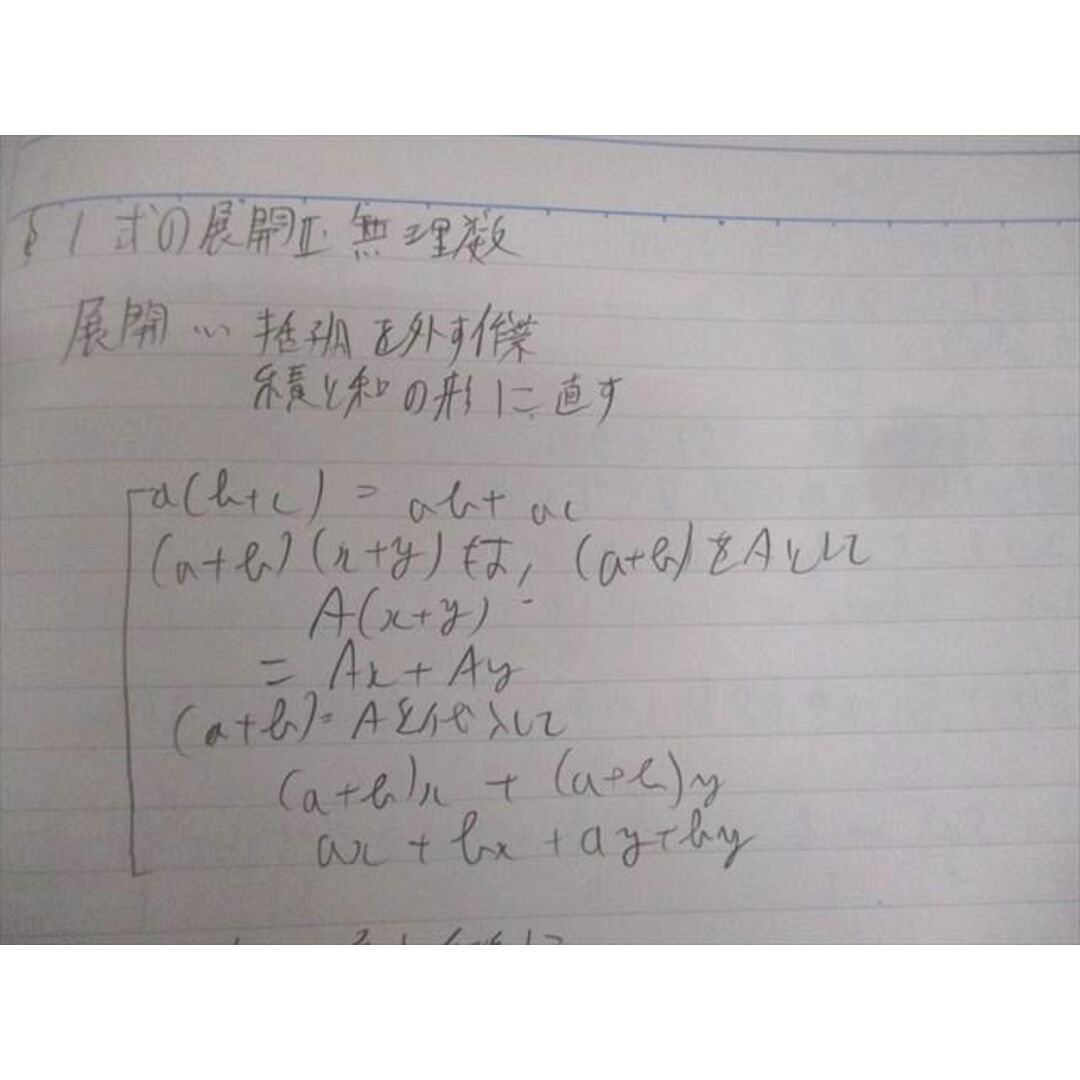 §1 式の展開Ⅱ. 無理数
展開 … 括弧を外す作業
積と和の形に直す
a(b+c) = ab+ac
(a+b)(x+y)は, (a+b)をAとして
A(x+y)
= Ax + Ay
(a+b)=Aを代入して
(a+b)x + (a+b)y
ax + bx + ay + by